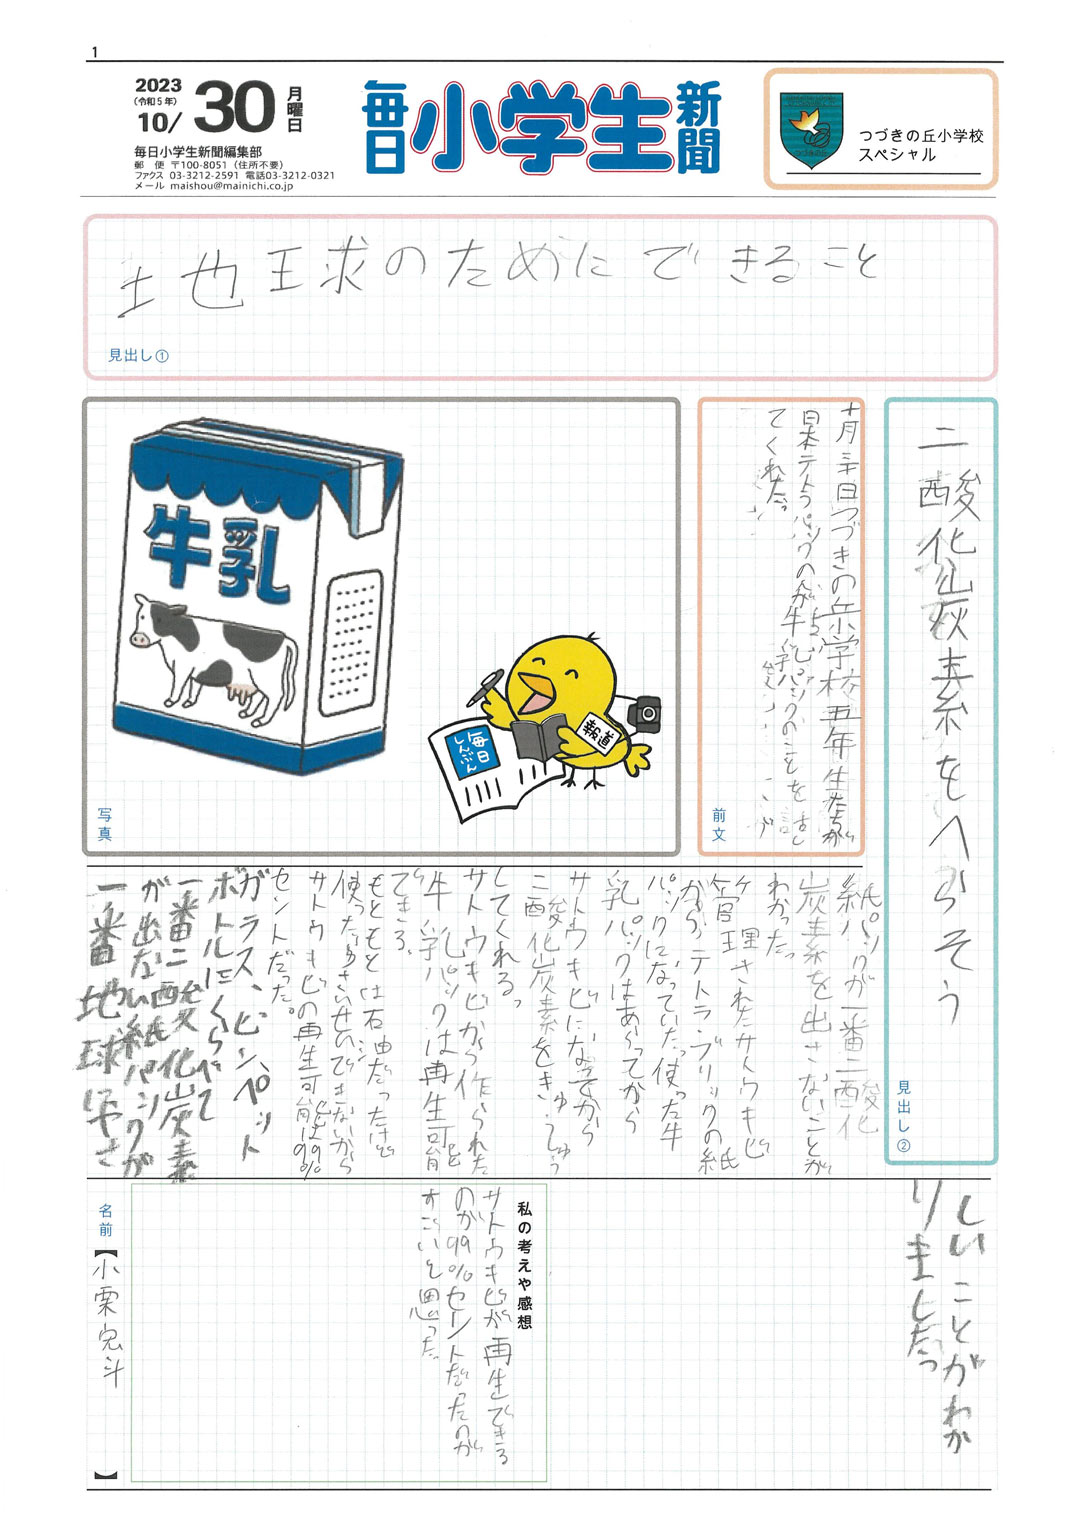 1
2023
(令和5年)
10/30
月曜日
毎日小学生新聞編集部
郵　便　〒100-8051（住所不要）
ファクス　03-3212-2591　電話03-3212-0321
メール　maishou@mainichi.co.jp
毎日小学生新聞
つづきの丘小学校
スペシャル
地球のためにできること
見出し①
二酸化炭素をへらそう
見出し②
十月三十日つづきの丘学校五年生たちが
日本テトラパックの
牛乳パックのことを話し
てくれた。
前文
牛乳
報道
毎日
しんぶん
写真
紙パックが一番二酸化
炭素を出さないことが
わかった。
管理されたサトウキビ
から、テトラブリックの紙
パックになっていた。使った牛
乳パックはあらってから
サトウキビになってから
二酸化炭素をきゅうしゅう
してくれる。
サトウキビから作られた
牛乳パックは再生可能
できる。
もともとは石油だったけど
使ったらさいせいできないから
サトウキビの再生可能は99%
セントだった。
ガラス、ビン、ペット
ボトルにくらべて
一番二酸化炭素
が出ない紙パックが
一番地球にやさ
しいことがわか
りました。
私の考えや感想
サトウキビが再生できる
のが99%セントだったのが
すごいと思った。
名前
【小栗
斗】